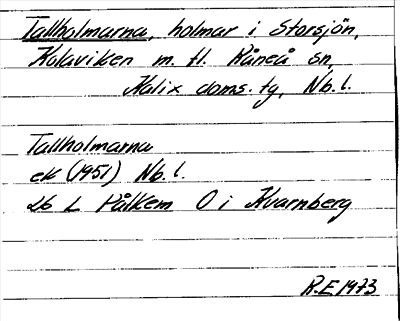 Tallholmarna, holmar i Storsjön,
Kalaviken m. fl. Råneå sn,
Kalix doms. tg, Nb. l.
Tallholmarna
ek (1951) Nb. l.
26 L Pålkem O i Kvarnberg
R.E 1973